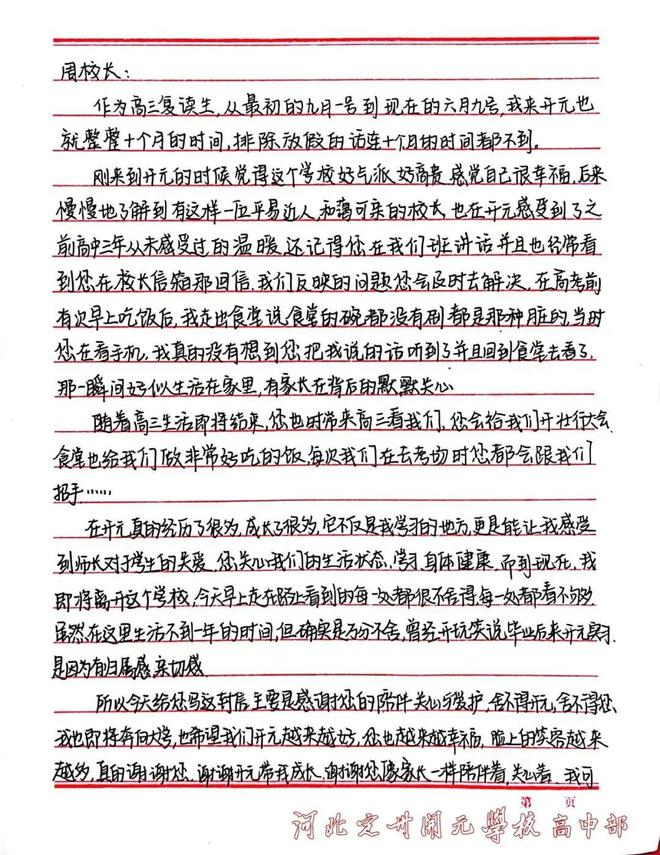 周校长：
作为高三复读生，从最初的九月一号到现在的六月九号，我来开元也
就整整十个月的时间，排除放假的话连十个月的时间都不到。
刚来到开元的时候觉得这个学校好气派，好高贵，感觉自己很幸福，后来
慢慢地了解到有这样一位平易近人，和蔼可亲的校长，也在开元感受到了之
前高中三年从未感受过的温暖，还记得您在我们班讲话并且也经常看
到您在校长信箱那回信，我们反映的问题您会及时去解决，在高考前
有次早上吃饭后，我走出食堂说食堂的碗都没有刷都是那种脏的，当时
您在看手机，我真的没有想到您把我说的话听到了并且回到食堂去看了，
那一瞬间好似生活在家里，有家长在背后的默默关心
随着高三生活即将结束，您也时常来高三看我们，您会给我们开壮行大会，
食堂也给我们做非常好吃的饭，每次我们在去考场时您都会跟我们
招手……
在开元真的经历了很多，成长了很多，它不仅是我学习的地方，更是能让我感受
到师长对于学生的关爱，您关心我们的生活状态，学习，身体健康，而到现在，我
即将离开这个学校，今天早上走在路上看到的每一处都很不舍得，每一处都看不够
虽然在这里生活不到一年的时间，但确实是万分不舍，曾经开玩笑说毕业后来开元实习
是因为有归属感，亲切感
所以今天给您写这封信主要是感谢您的陪伴关心与爱护，舍不得开元，舍不得您，
我也即将奔向大学，也希望我们开元越来越好，您也越来越幸福，脸上的笑容越来
越多，真的谢谢您，谢谢开元带我成长，谢谢您像家长一样陪伴着，关心着，我可
第 页
河北定州開元學校高中部